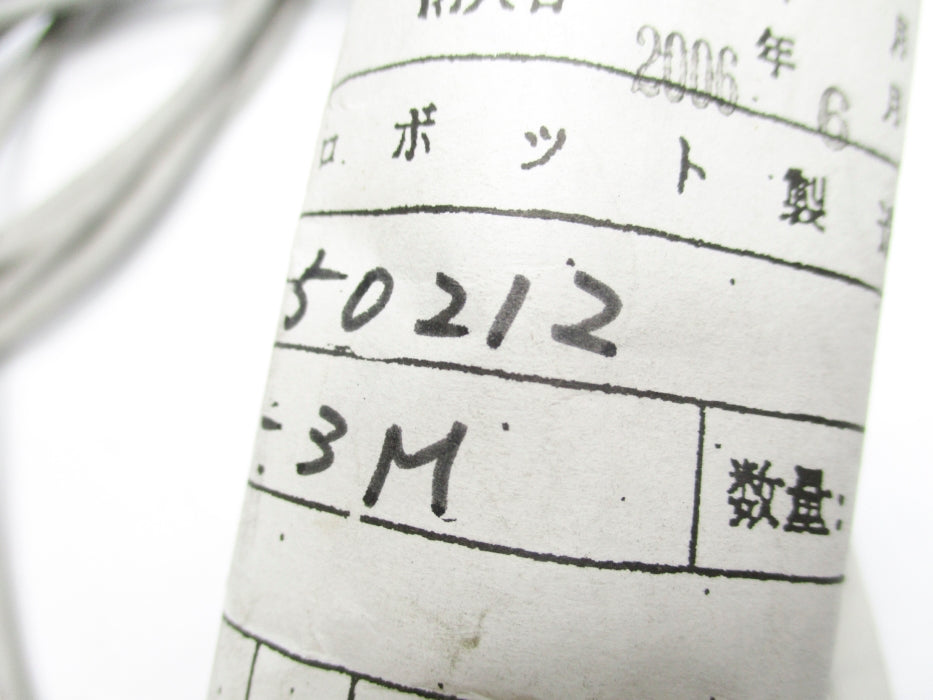 2006 年 6 月
ロボット製
50212
-3M 数量: